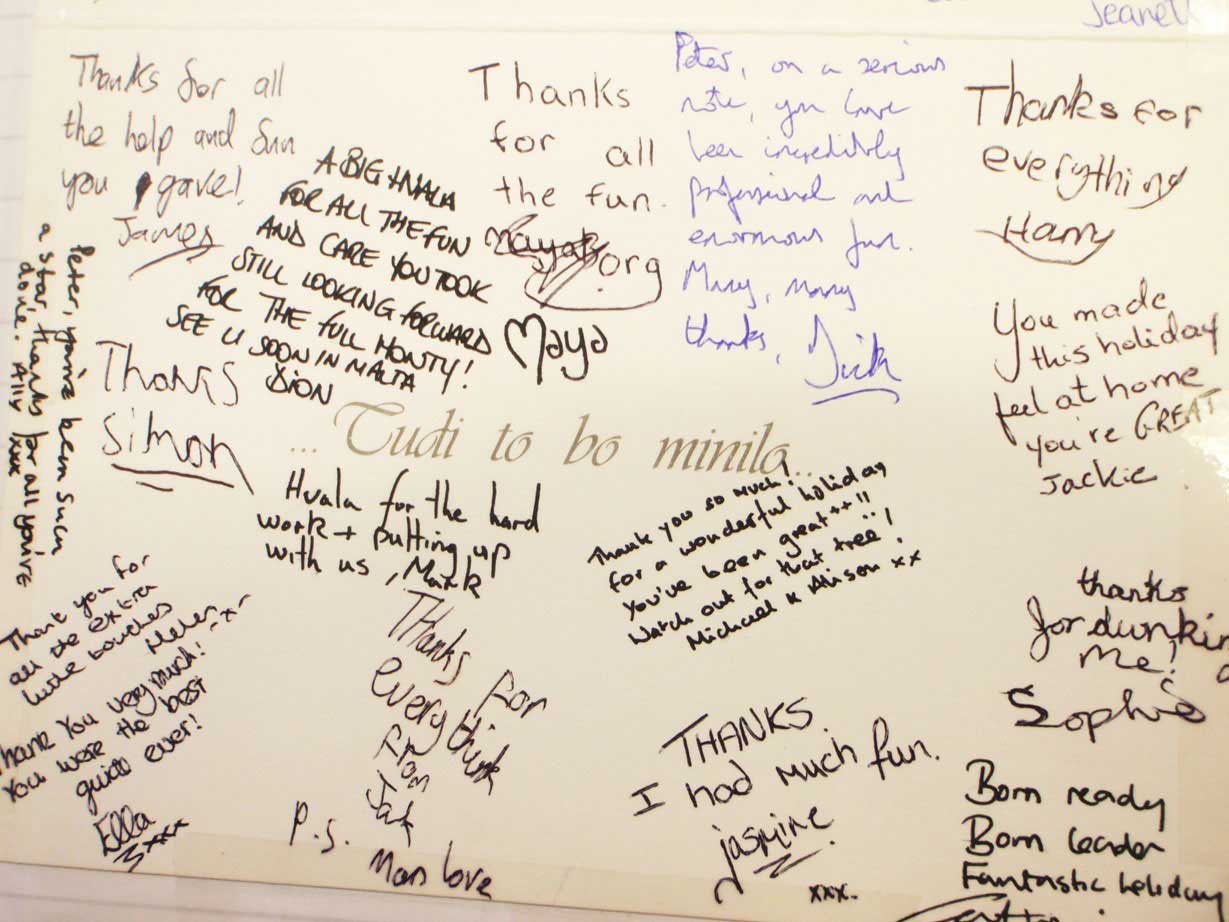 Jeanet
Thanks for all
the help and fun
you gave!
James
A BIG HVALA
FOR ALL THE FUN
AND CARE YOU TOOK
STILL LOOKING FORWARD
FOR THE FULL MONTY!
SEE U SOON IN MALTA
DION
Thanks
for all
the fun.
org
Maya
Peter, on a serious
note, you have
been incredibly
professional and
enormous fun.
Many, many
thanks,
Thanks for
everything
Harry
Peter, you've been such
a star, thanks for all you've
done. Ally xxx
Thanks
Simon
You made
this holiday
feel at home
you're GREAT
Jackie
... Tudi to bo minilo...
Hvala for the hard
work + putting up
with us, Mark
Thank you so much!
for a wonderful holiday
You've been great++!!
Watch out for that tree!
Michael & Alison xx
Thank you for
all the extra
little touches
Helen -x-
Thank you very much!
You were the best
guide ever!
Ella
xxxx
Thanks for
everythink
from
Jak
P.S.
Man love
thanks
for dunking
me!
Sophie
THANKS
I had much fun.
jasmine
xxx.
Born ready
Born leader
Fantastic holiday